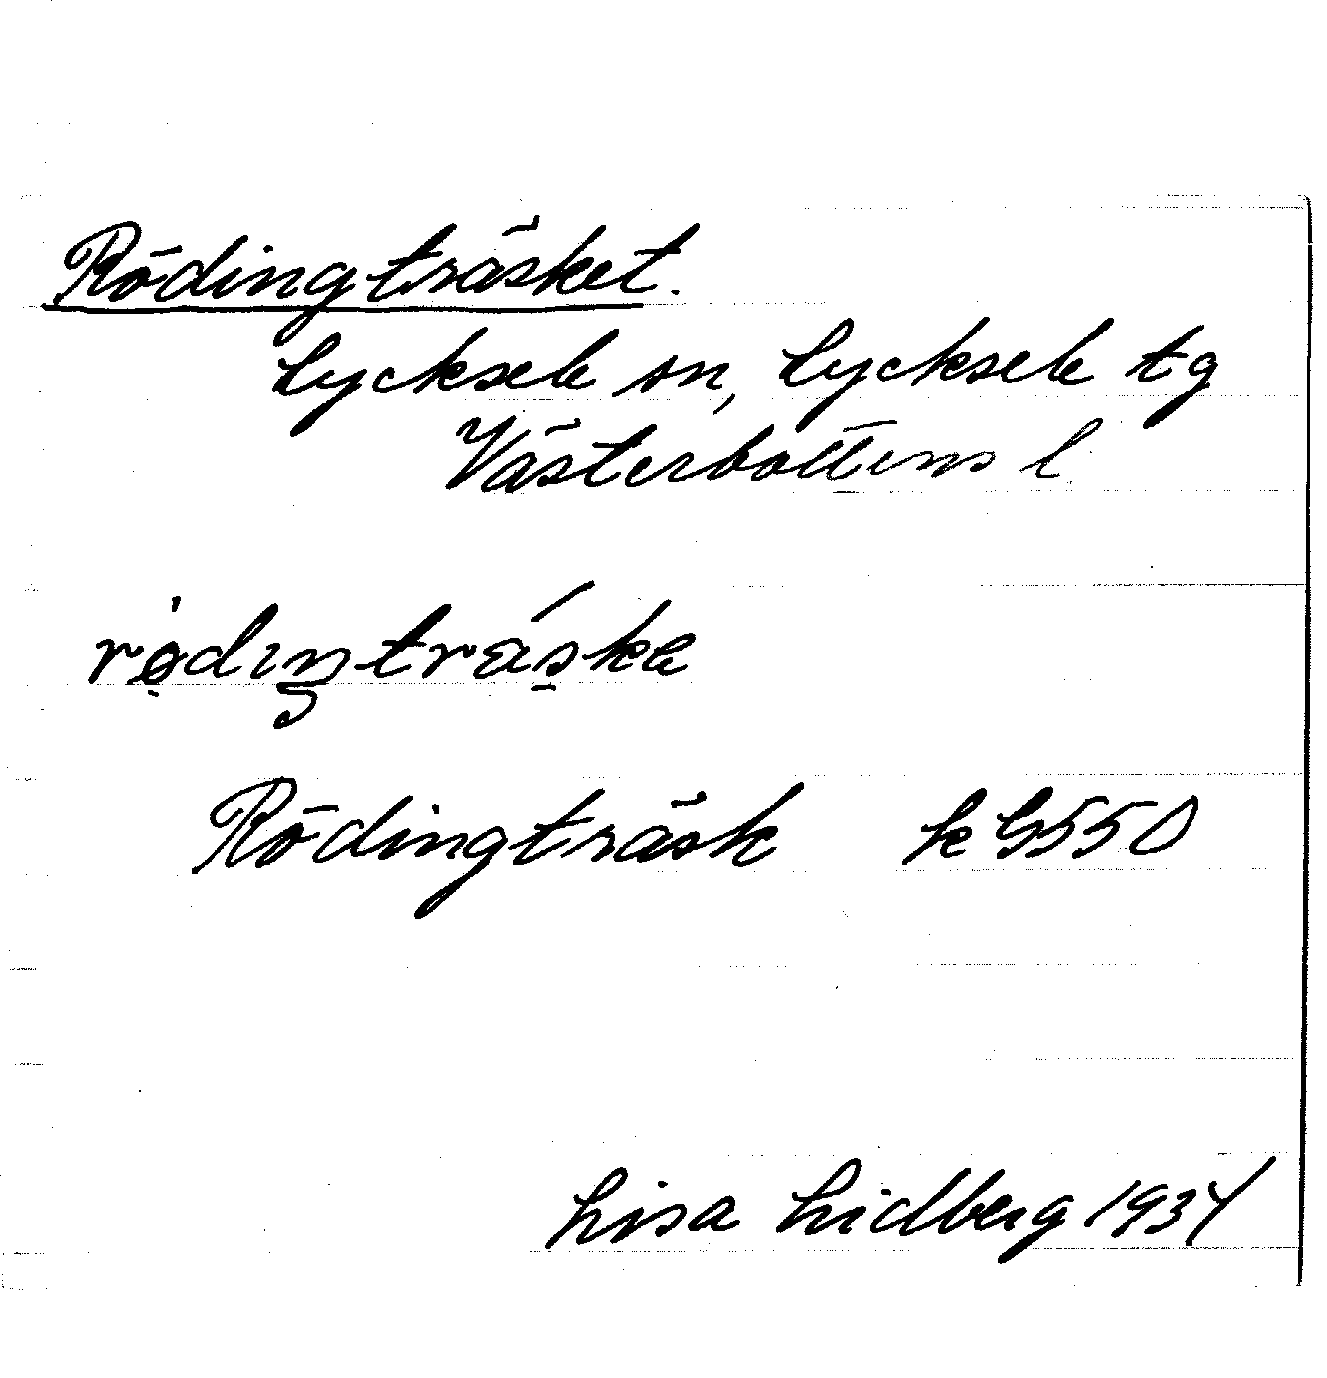 Rödingträsket.
Lycksele sn, Lycksele tg
Västerbottens l
Rödingträsk
Lisa Lidberg 1934